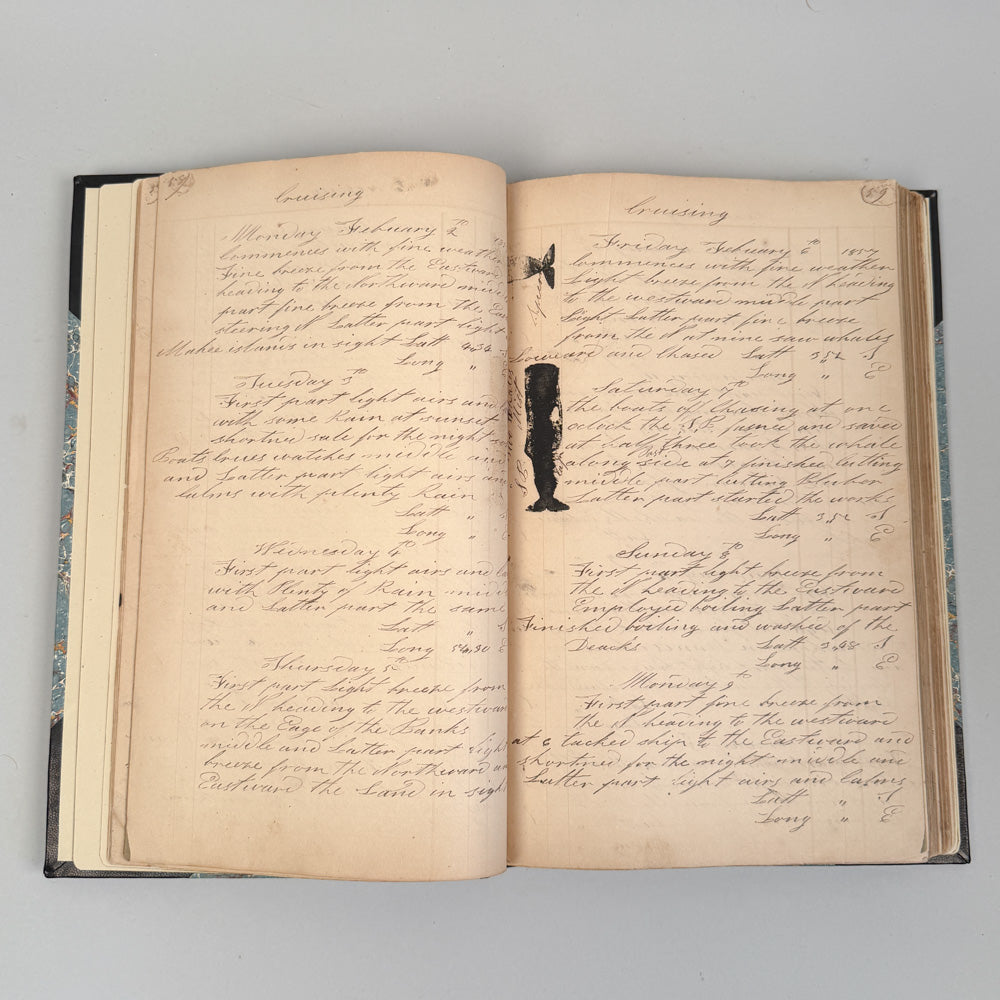 59
Cruising
Monday Febuary 2th
Commences with fine weather
Fine breeze from the Eastward
heading to the Northward midd
part fine breeze from the E
steering N Latter part light
Mahee islands in sight Latt 4,,34 S
Long ,, E
Tuesday 3th
First part light airs and
with some Rain at sunset
shortned sale for the night
Boats crews watches middle and
and Latter part light airs and
calms with plenty Rain
Latt ,,
Long ,,
Wednesday 4th
First part light airs and
with Plenty of Rain midd
and Latter part the same
Latt ,, S
Long 54,,30 E
Thursday 5th
First part Light breeze from
the N heading to the westward
on the Eage of the Banks
middle and Latter part light
breeze from the Northward an
Eastward the Land in sight
59
Cruising
Friday Febuary 6th 1857
Commences with fine weather
Light breeze from the N heading
to the westward middle part
Light Latter part fine breeze
from the N at nine saw whales
Loweard and chased Latt 3,,52 S
Long ,, E
Saturday 7th
the boats of Chasing at one
oclock the S.B. and saved
at half Past three took the whale
along side at 7 finished Cutting
middle part cutting Blubor
Latter part started the works
Latt 3,,52 S
Long ,, E
Sunday 8th
First part light breeze from
the N heading to the Eastward
Employed boiling Latter part
Finished boiling and washed of the
Deacks Latt 3,,48 S
Long ,, E
Monday 9th
First part fine breeze from
the N heading to the westward
at 6 tacked ship to the Eastward and
shortned for the night middle and
Latter part light airs and calms
Latt ,, S
Long ,, E